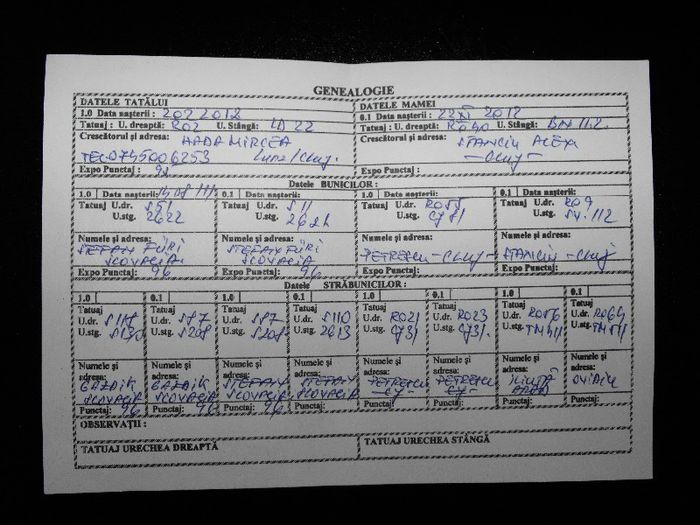 GENEALOGIE
DATELE TATĂLUI
DATELE MAMEI
1.0 Data nașterii : 202 2012
0.1 Data nașterii : 22 XI 2012
Tatuaj : U. dreaptă: R02 U. Stângă: LD 22
Tatuaj : U. dreaptă: R040 U. Stângă: BN 112
Crescătorul și adresa: HADA MIRCEA
Crescătorul și adresa: STANCIU ALEX
TEL-0745006253 Luna/Cluj.
-CLUJ-
Expo Punctaj : 92
Expo Punctaj :
Datele BUNICILOR :
1.0 Data nașterii:
0.1 Data nașterii:
1.0 Data nașterii:
0.1 Data nașterii:
Tatuaj U.dr. S51
Tatuaj U.dr. S11
Tatuaj U.dr. R055
Tatuaj U.dr. R09
U.stg. 2622
U.stg.
U.stg. CJ31
U.stg. 112
Numele și adresa:
Numele și adresa:
Numele și adresa:
Numele și adresa:
STEFAN FÜRI
STEFAN FÜRI
PETRESCU-CLUJ-
STANCIU-CLUJ
SLOVACIA
SLOVACIA
Expo Punctaj: 96
Expo Punctaj: 96
Expo Punctaj:
Expo Punctaj:
Datele STRĂBUNICILOR:
1.0 0.1 1.0 0.1 1.0 0.1 1.0 0.1
Tatuaj Tatuaj Tatuaj Tatuaj Tatuaj Tatuaj Tatuaj Tatuaj
U.dr. S118 U.dr. S87 U.dr. S87 U.dr. S110 U.dr. R021 U.dr. R023 U.dr. R056 U.dr. R064
U.stg. U.stg. S208 U.stg. S208 U.stg. 2613 U.stg. CJ31 U.stg. CJ31 U.stg. U.stg.
Numele și Numele și Numele și Numele și Numele și Numele și Numele și Numele și
adresa: adresa: adresa: adresa: adresa: adresa: adresa: adresa:
GAZDIK GAZDIK STEFAN STEFAN PETRESCU PETRESCU OVIDIU
SLOVACIA SLOVACIA SLOVACIA SLOVACIA CJ CJ
Punctaj: 96 Punctaj: 96 Punctaj: Punctaj: Punctaj: Punctaj: Punctaj: Punctaj:
OBSERVAȚII :
TATUAJ URECHEA DREAPTĂ
TATUAJ URECHEA STÂNGĂ